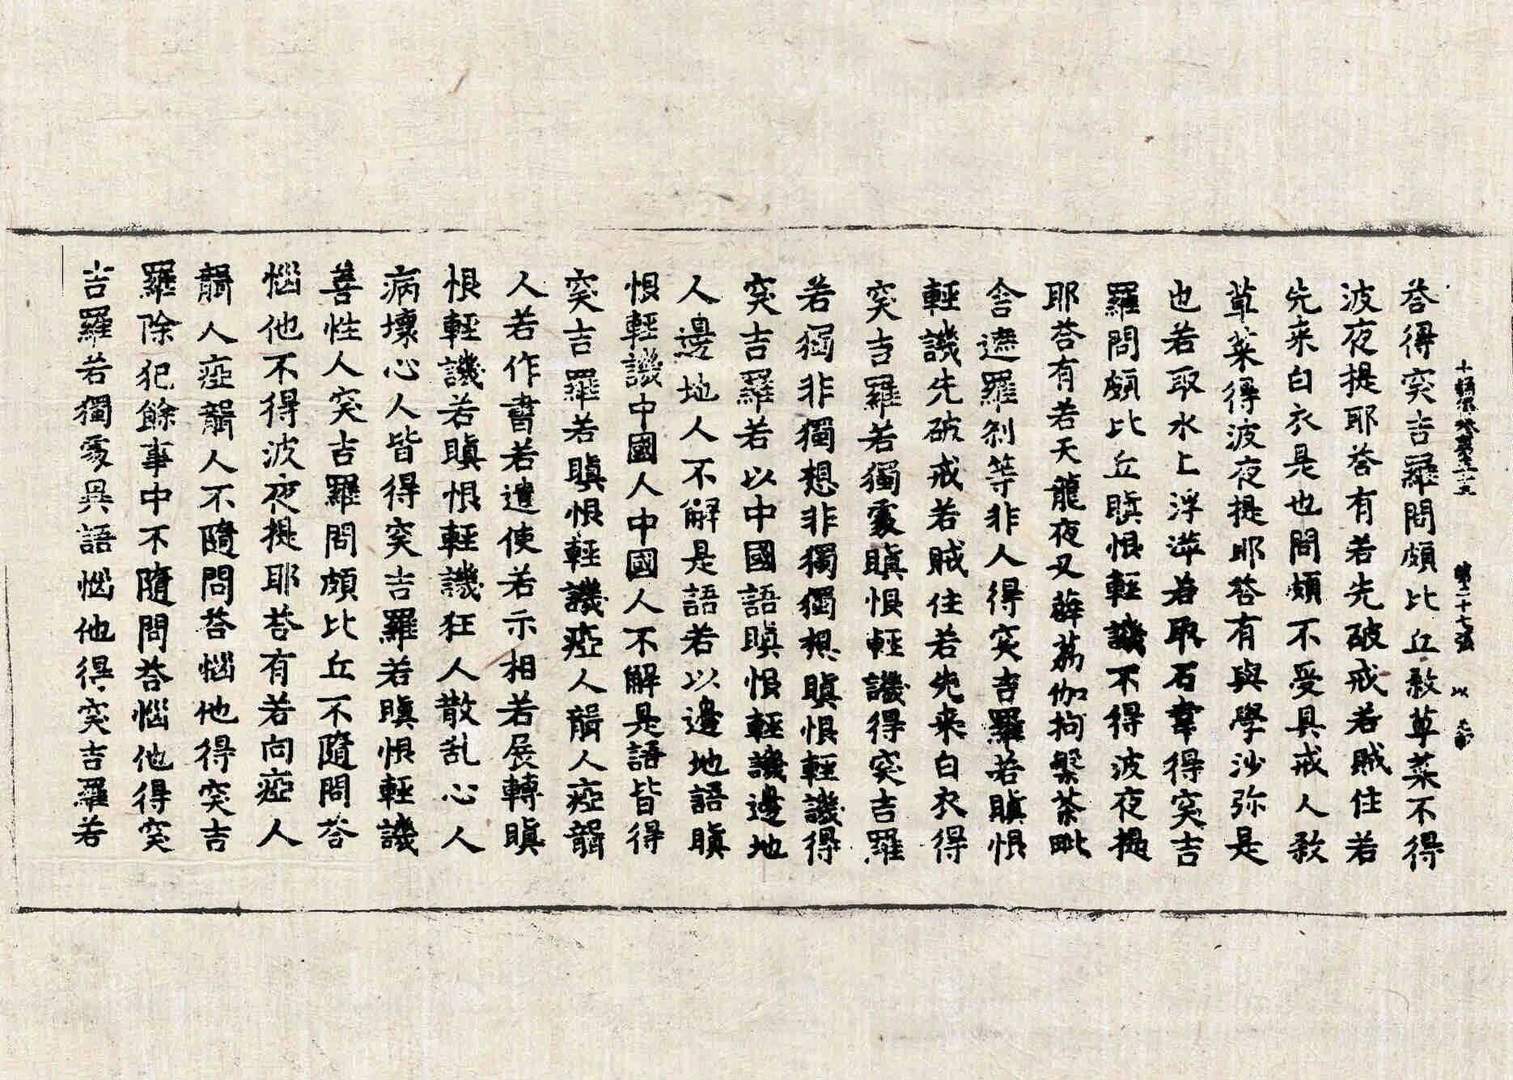 答得突吉羅問頗比丘敎草菜不得
波夜提耶荅有若先破戒若賊住若
先来白衣是也問頗不受具戒人敎
草菜得波夜提耶荅有與學沙弥是
也若取水上浮萍若取石葦得突吉
羅問頗比丘瞋恨輕譏不得波夜提
耶荅有若天龍夜叉薜荔伽拘槃荼毗
舎遮羅剎等非人得突吉羅若瞋恨
輕譏先破戒若賊住若先来白衣得
突吉羅若獨處瞋恨輕譏得突吉羅
若獨非獨想非獨獨想瞋恨輕譏得
突吉羅若以中國語瞋恨輕譏邊地
人邊地人不解是語若以邊地語瞋
恨輕譏中國人中國人不解是語皆得
突吉羅若瞋恨輕譏瘂人聾人瘂聾
人若作書若遣使若示相若展轉瞋
恨輕譏若瞋恨輕譏狂人散乱心人
病壞心人皆得突吉羅若瞋恨輕譏
善性人突吉羅問頗比丘不隨問荅
惱他不得波夜提耶荅有若向瘂人
聾人瘂聾人不隨問荅惱他得突吉
羅除犯餘事中不隨問荅惱他得突
吉羅若獨處異語惱他得突吉羅若